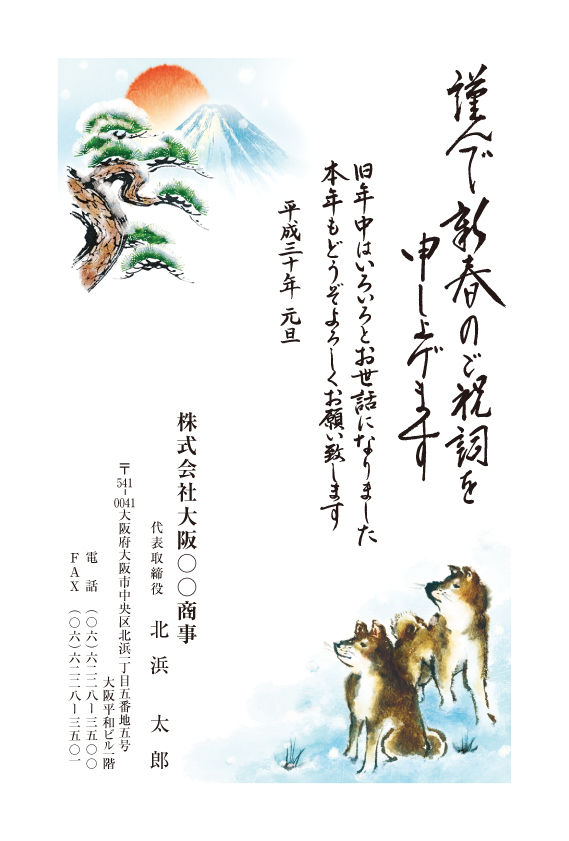 謹んで新春のご祝詞を
申し上げます
旧年中はいろいろとお世話になりました
本年もどうぞよろしくお願い致します
平成三十年 元旦
株式会社大阪〇〇商事
代表取締役 北浜 太郎
〒541-0041大阪府大阪市中央区北浜一丁目五番地五号
大阪平和ビル一階
電話 (〇六)六二二八ー三五〇〇
FAX (〇六)六二二八ー三五〇一